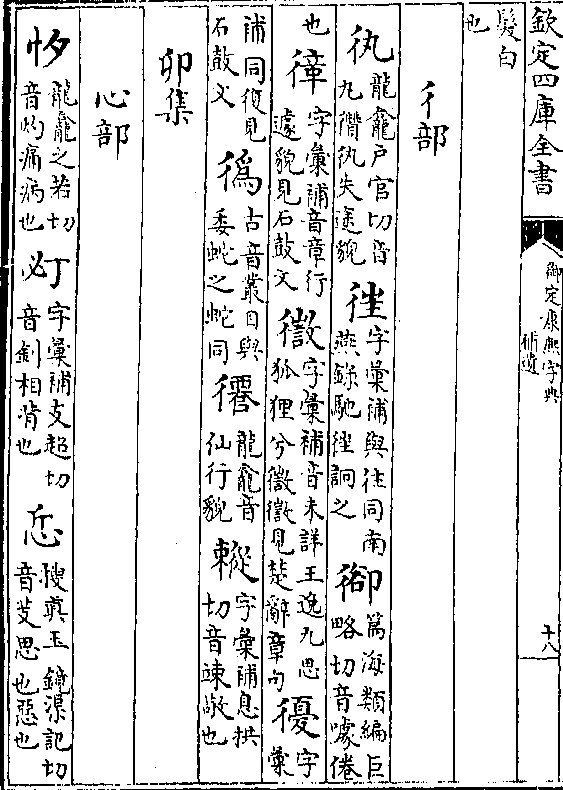 欽定四庫全書
御定康熙字典
補遺
十八
髮白
也
彳部
龍龕戶官切音
失途貌
字彙補與往同南
燕錄馳徃詗之
篇海類編巨
略切音噱倦
也
字彙補音章行
遽貌見石鼓文
字彙補音未詳王逸九思
狐狸兮徾徾見楚辭章句
字
彙
補同復見
石鼓文
古音叢目與
委蛇之蛇同
龍龕音
仙行貌
字彙補息拱
切音竦敬也
卯集
心部
龍龕之若切
音灼痛病也
字彙補支超切
音釗相背也
搜真玉鏡渠記切
音芰思也惡也